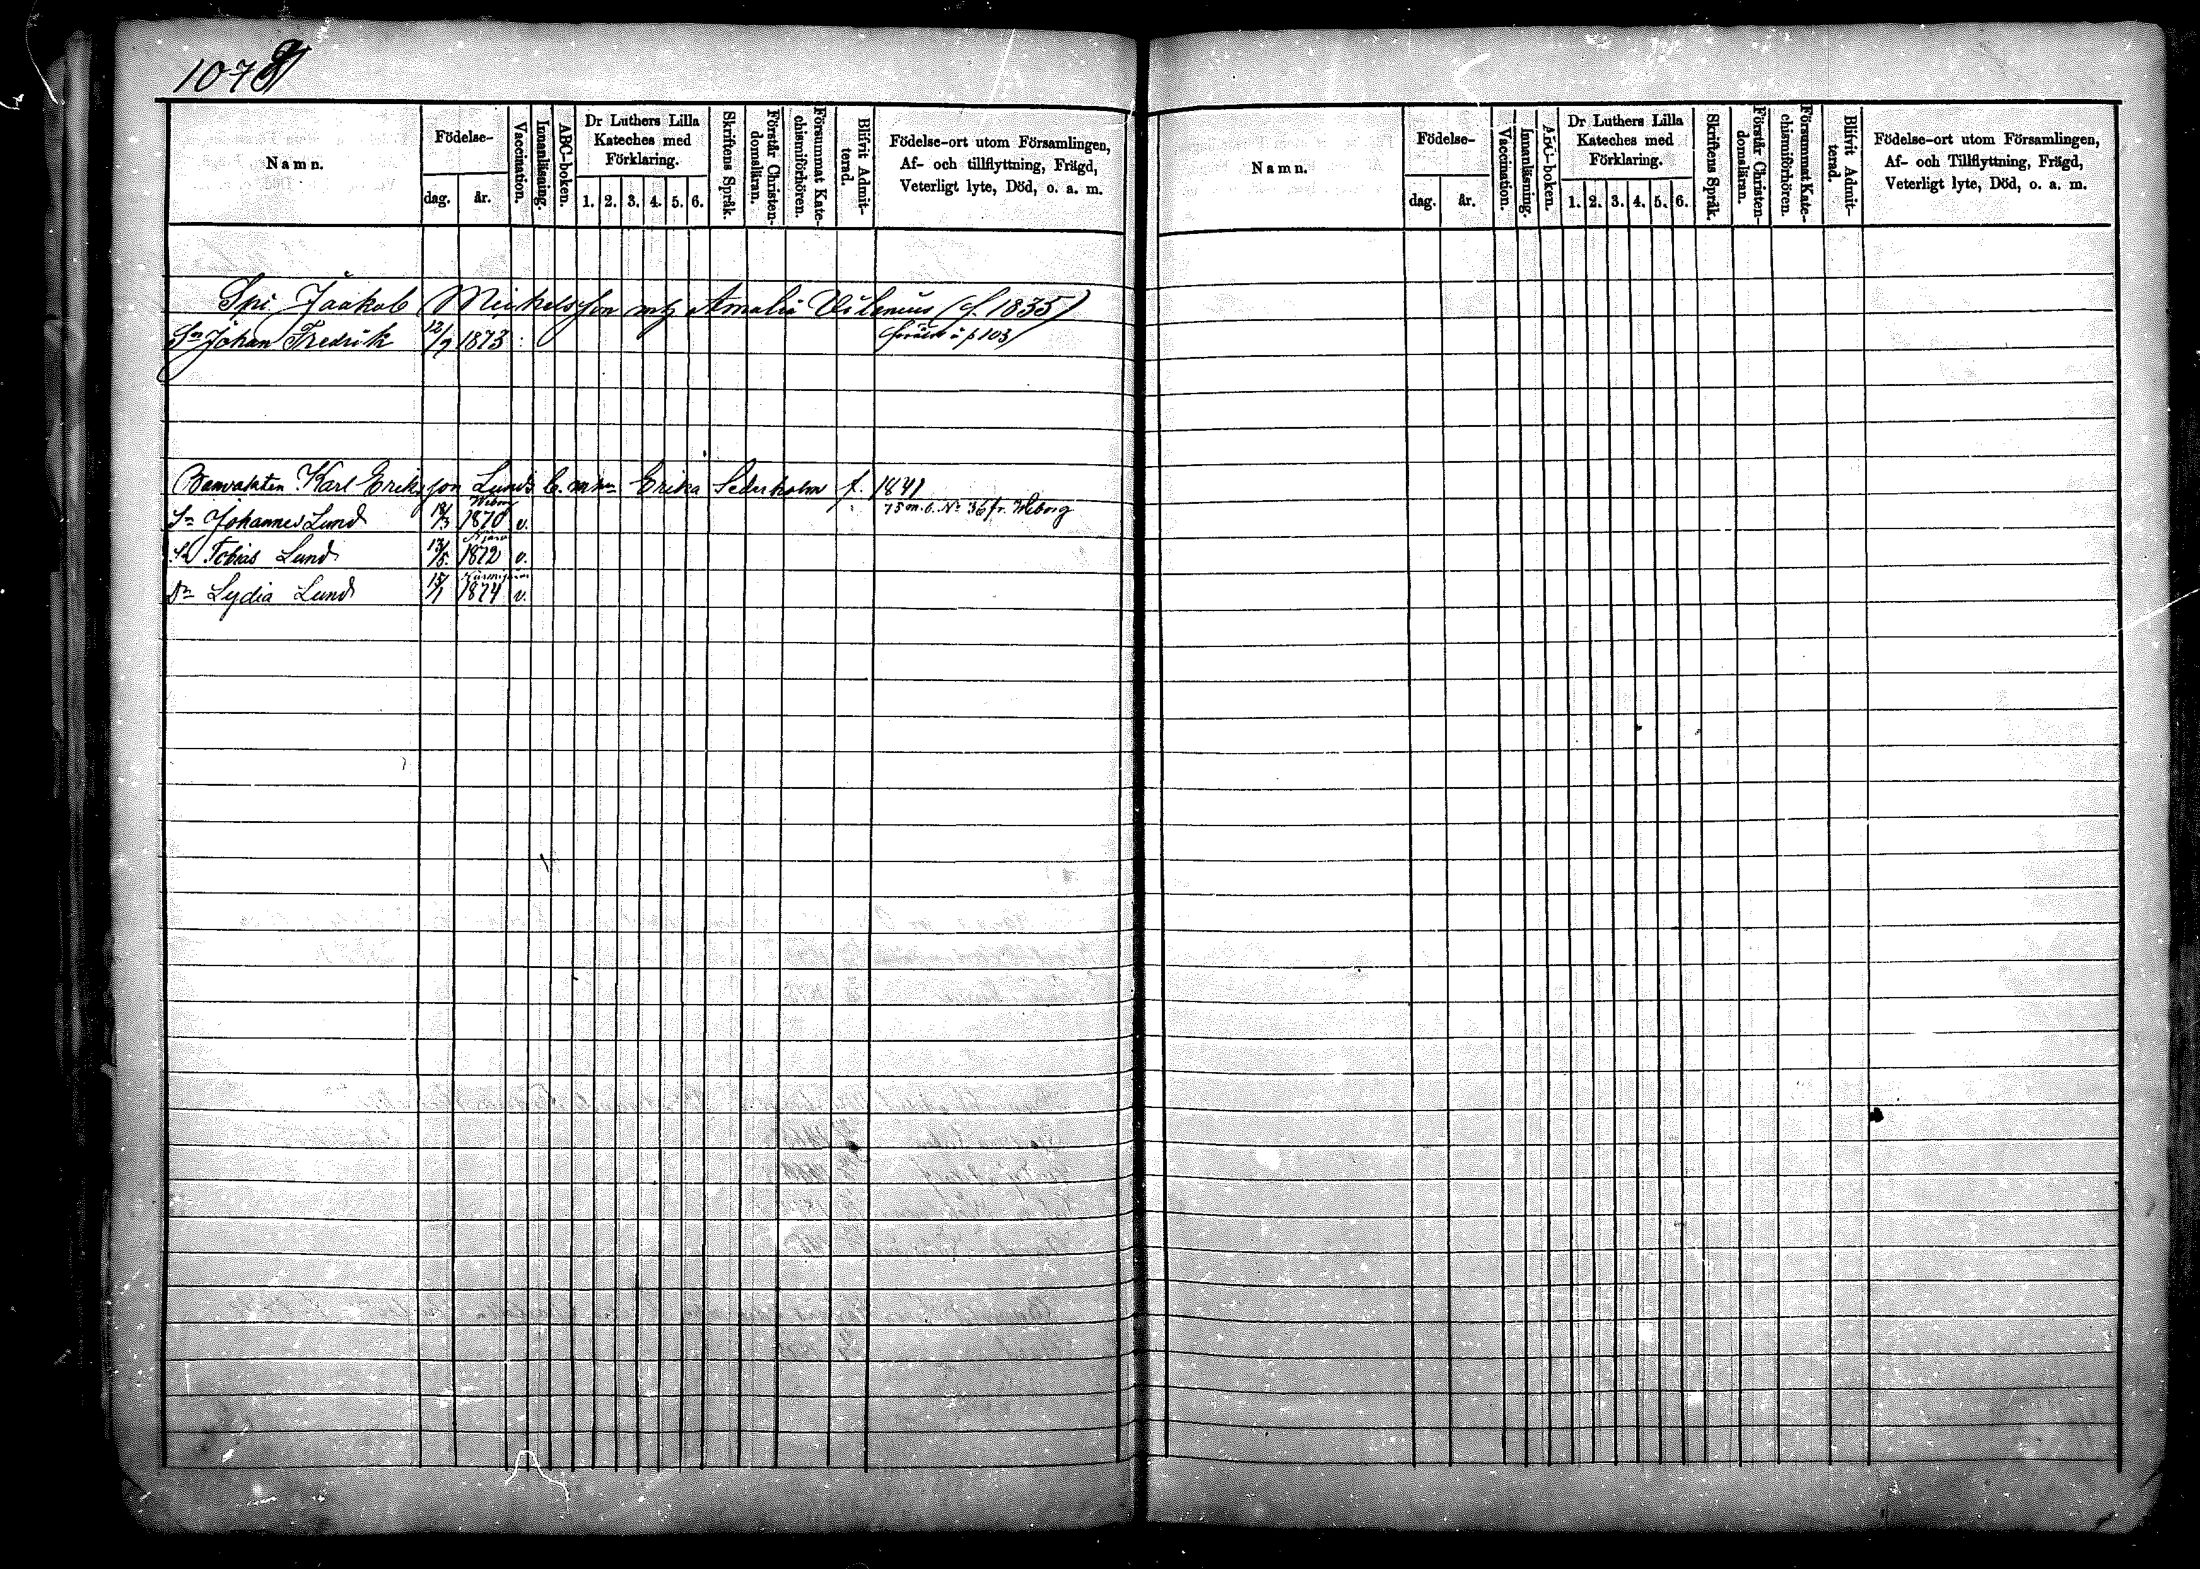 1078
Namn.
Födelse-
dag.
år.
Vaccination.
Innanläsning.
ABC-boken.
Dr Luthers Lilla
Kateches med
Förklaring.
1. 2. 3. 4. 5. 6.
Skriftens Språk.
Förstår Christen-
domsläran.
Försummat Kate-
chismiförhören.
Blifvit Admit-
terad.
Födelse-ort utom Församlingen,
Af- och tillflyttning, Frägd,
Veterligt lyte, Död, o. a. m.
Spi. Jaakob Mickelsson Amalia (f. 1835)
Sn Johan Fredrik 12/9 1873 p 103
Banvakten Karl Eriksson Lunds Erika Sederholm f. 1841
Sn Johannes Lund 18/3 1870 v. No 36 fr. Wiborg
Sn Tobias Lund 13/5 1872 v.
Dr Lydia Lund 15/1 1874 v.
Namn.
Födelse-
dag.
år.
Vaccination.
Innanläsning.
ABC-boken.
Dr Luthers Lilla
Kateches med
Förklaring.
1. 2. 3. 4. 5. 6.
Skriftens Språk.
Förstår Christen-
domsläran.
Försummat Kate-
chismiförhören.
Blifvit Admit-
terad.
Födelse-ort utom Församlingen,
Af- och Tillflyttning, Frägd,
Veterligt lyte, Död, o. a. m.